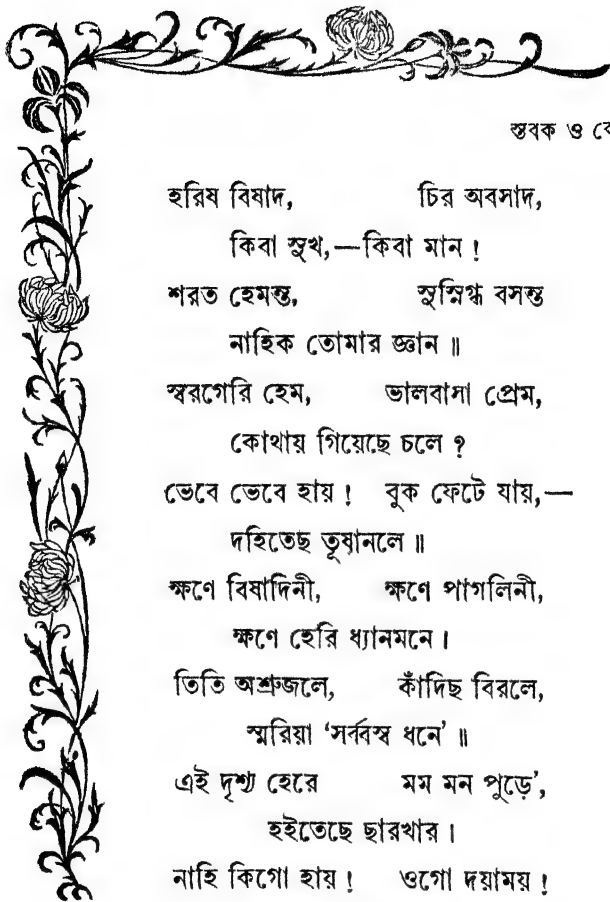 স্তবক ও
হরিষ বিষাদ, চির অবসাদ,
কিবা সুখ,—কিবা মান !
শরত হেমন্ত, সুস্নিগ্ধ বসন্ত
নাহিক তোমার জ্ঞান ॥
স্বরগেরি হেম, ভালবাসা প্রেম,
কোথায় গিয়েছে চলে ?
ভেবে ভেবে হায় ! বুক ফেটে যায়,—
দহিতেছ তূষানলে ॥
ক্ষণে বিষাদিনী, ক্ষণে পাগলিনী,
ক্ষণে হেরি ধ্যানমনে ।
তিতি অশ্রুজলে, কাঁদিছ বিরলে,
স্মরিয়া ‘সর্ব্বস্ব ধনে’ ॥
এই দৃশ্য হেরে মম মন পুড়ে’,
হইতেছে ছারখার ।
নাহি কিগো হায় ! ওগো দয়াময় !